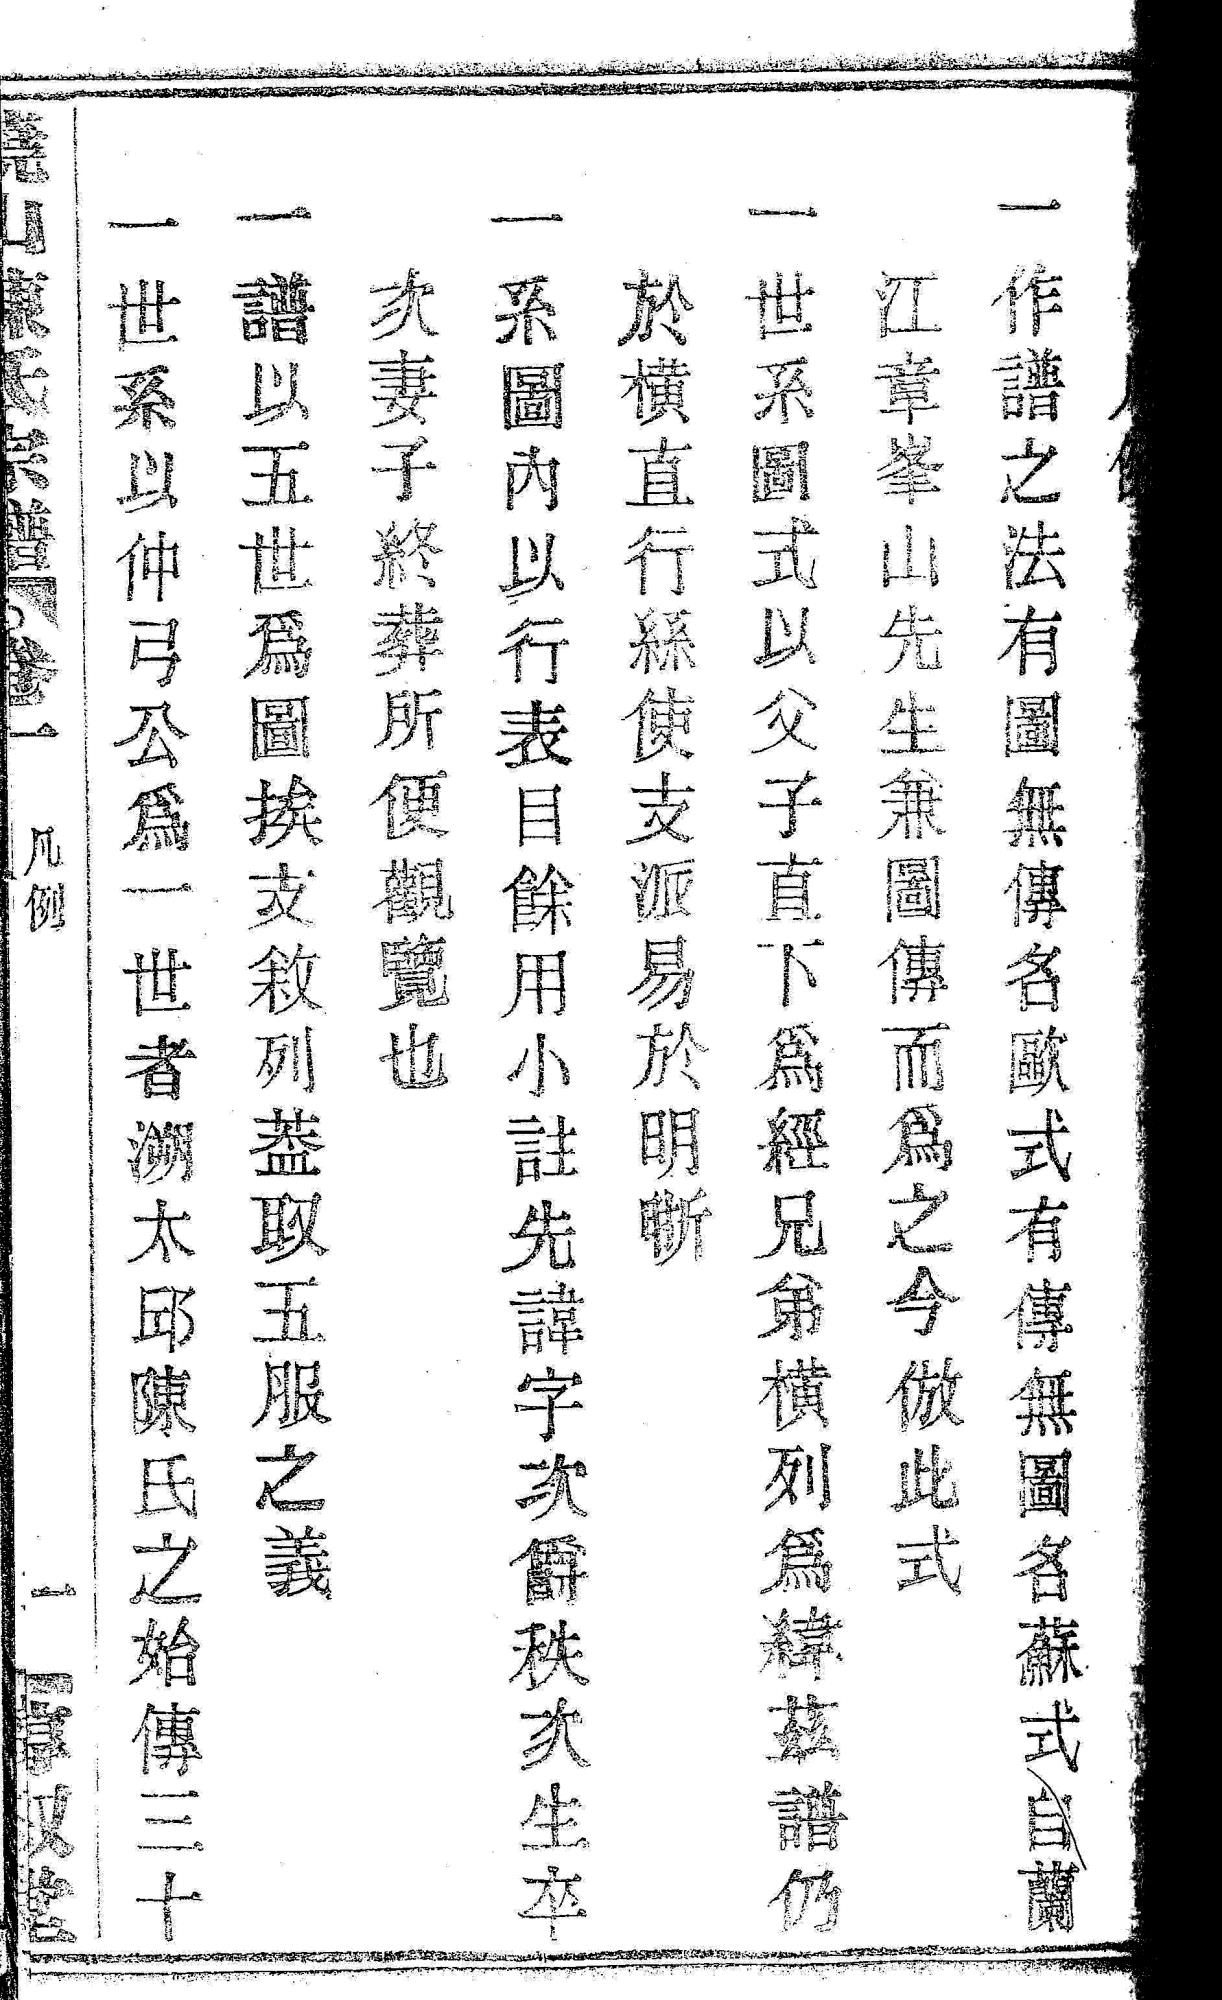 凡例
一作譜之法有圖無傳名歐式有傳無圖名蘇式自蘭
江章峯山先生兼圖傳而爲之今倣此式
一世系圖式以父子直下爲經兄弟橫列爲緯茲譜仍
於橫直行絲使支派易於明晣
一系圖內以行表目餘用小註先諱字次爵秩次生卒
次妻子終葬所便觀覽也
一譜以五世爲圖挨支敘列葢取五服之義
一世系以仲弓公爲一世者溯太邱陳氏之始傳三十
山陳氏宗譜 卷一 凡例 一